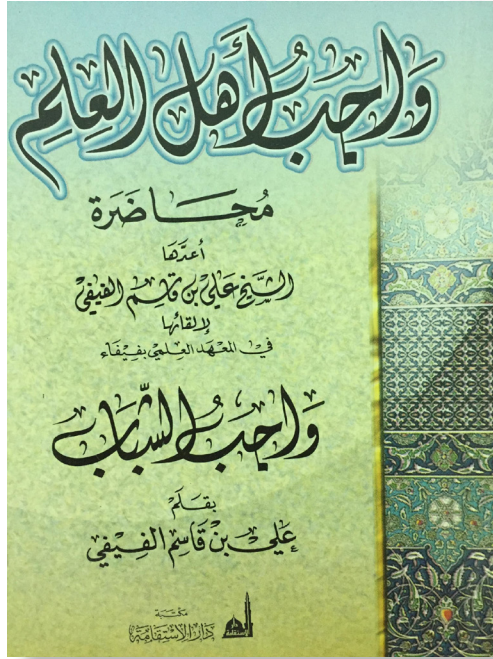 وَاجِبُ أَهلِ العِلمِ
مُحَاضَرة
أعدَّها
الشيخ علي بن قاسم الفيفي
لإلقائها
في المعهد العلمي بفيفاء
وَاجِبُ الشَّبَابِ
بقلَم
عَلي بنْ قَاسِم الفِيفي
مكتبة
دَارُ الاِسْتِقَامَة